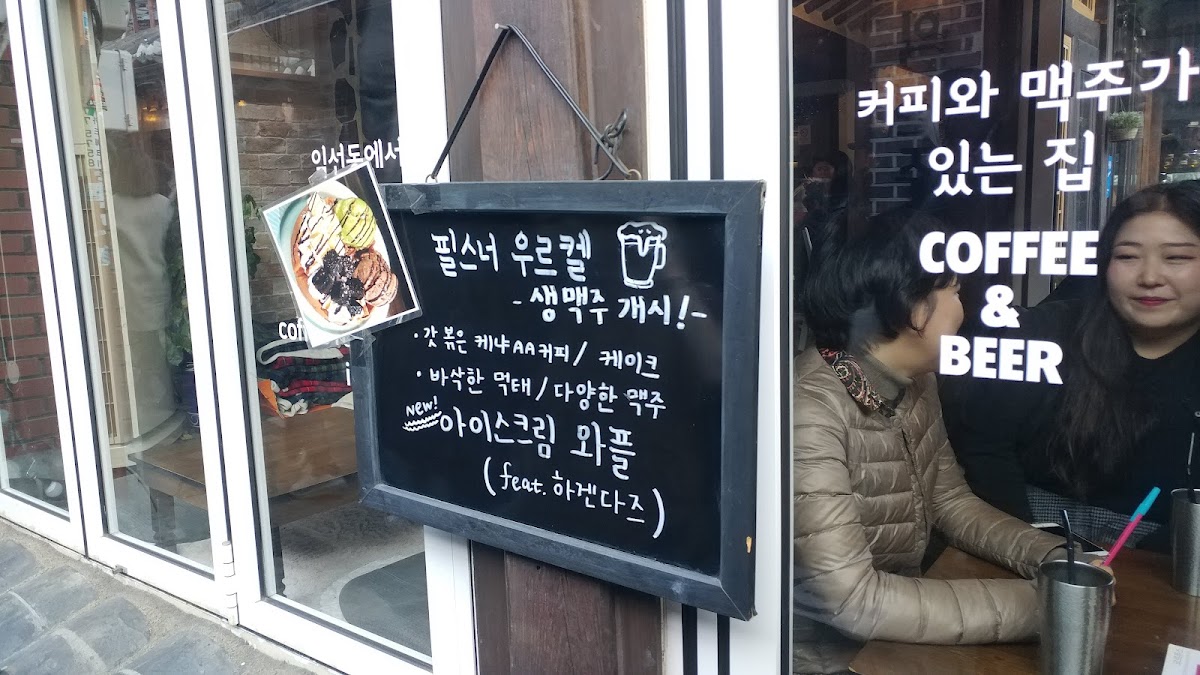 익선동에서
필스너 우르켈
- 생맥주 개시! -
· 갓 볶은 케냐AA커피 / 케이크
· 바삭한 먹태 / 다양한 맥주
New!
아이스크림 와플
(feat. 하겐다즈)
커피와 맥주가
있는 집
COFFEE
&
BEER